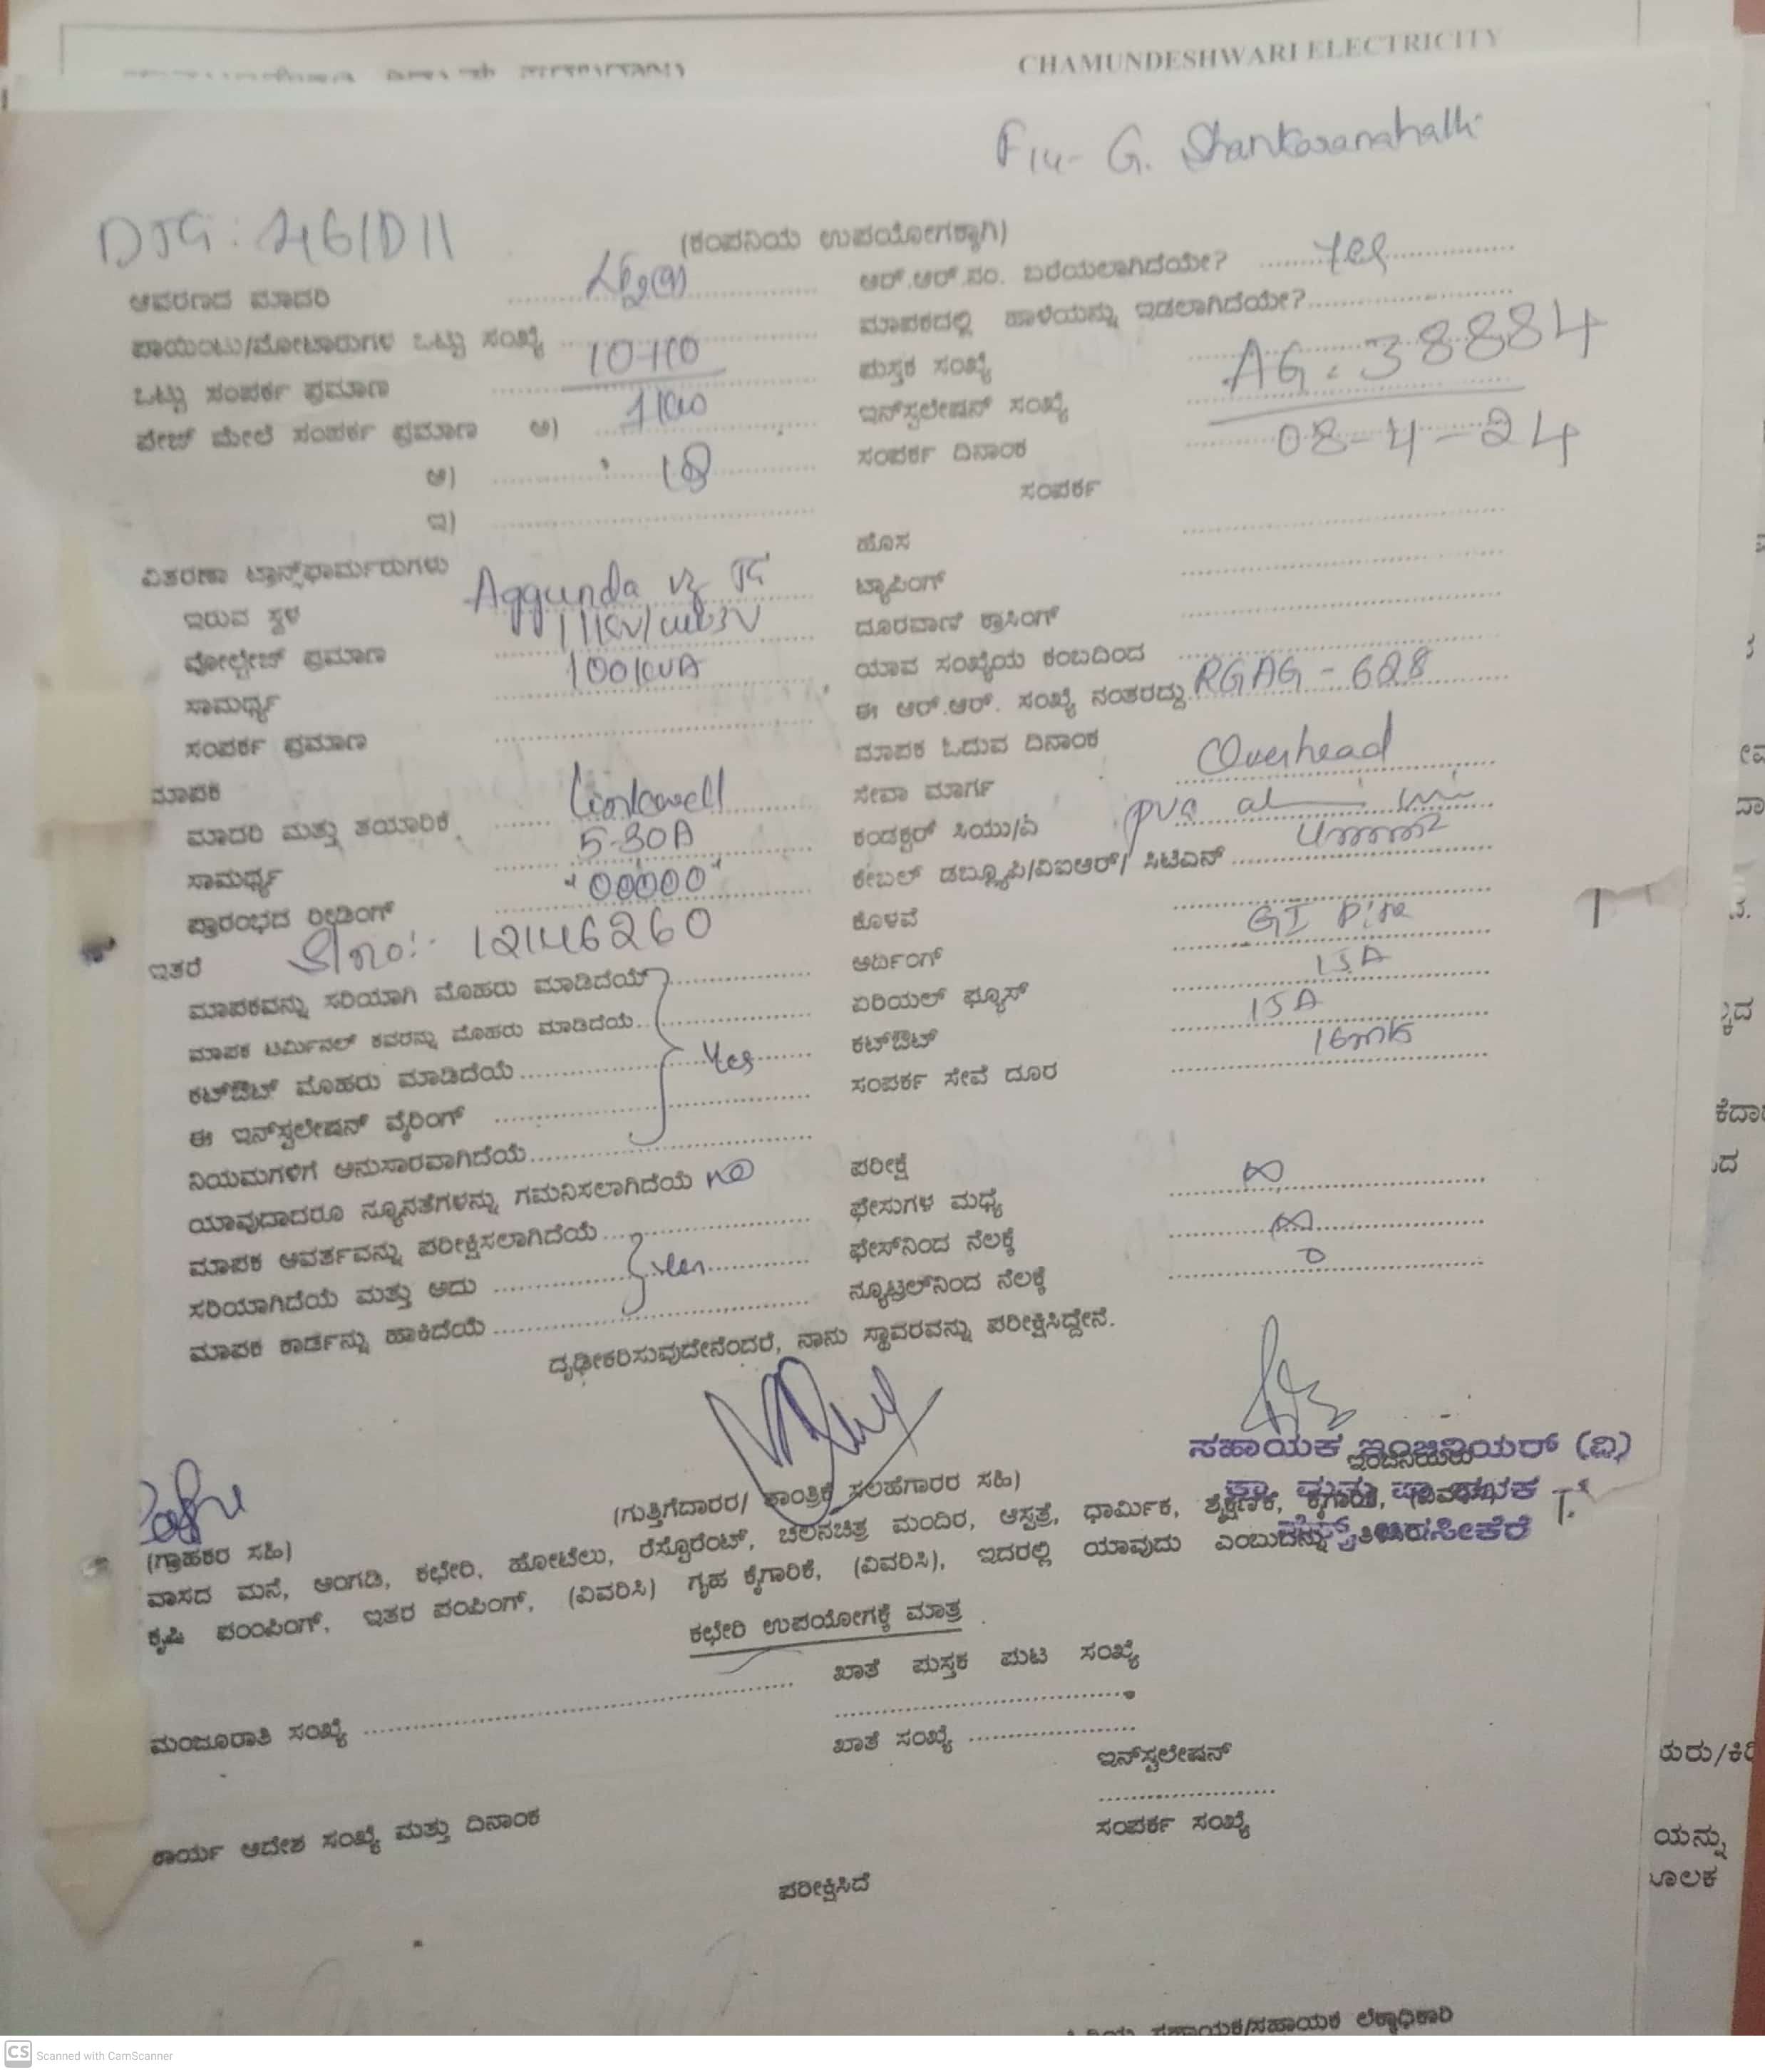 CHAMUNDESHWARI ELECTRICITY
F14- G. Shankaranahalli
DTG:
(ಕಂಪನಿಯ ಉಪಯೋಗಕ್ಕಾಗಿ)
ಆವರಣದ ಮಾದರಿ
ಆರ್.ಆರ್.ನಂ. ಬರೆಯಲಾಗಿದೆಯೇ? Yes
ಪಾಯಿಂಟು/ಮೋಟಾರುಗಳ ಒಟ್ಟು ಸಂಖ್ಯೆ
ಮಾಪಕದಲ್ಲಿ ಹಾಳೆಯನ್ನು ಇಡಲಾಗಿದೆಯೇ?
ಒಟ್ಟು ಸಂಪರ್ಕ ಪ್ರಮಾಣ
ಪುಸ್ತಕ ಸಂಖ್ಯೆ AG: 38884
ಪೇಜ್ ಮೇಲೆ ಸಂಪರ್ಕ ಪ್ರಮಾಣ ಅ)
ಇನ್‌ಸ್ಟಲೇಷನ್ ಸಂಖ್ಯೆ
ಆ)
ಸಂಪರ್ಕ ದಿನಾಂಕ 08-4-24
ಇ)
ಸಂಪರ್ಕ
ವಿತರಣಾ ಟ್ರಾನ್ಸ್‌ಫಾರ್ಮರುಗಳು
ಹೊಸ
ಇರುವ ಸ್ಥಳ Aggunda
ಟ್ಯಾಪಿಂಗ್
ವೋಲ್ಟೇಜ್ ಪ್ರಮಾಣ 11KV/
ದೂರವಾಣಿ ಕ್ರಾಸಿಂಗ್
ಸಾಮರ್ಥ್ಯ 100KVA
ಯಾವ ಸಂಖ್ಯೆಯ ಕಂಬದಿಂದ
ಸಂಪರ್ಕ ಪ್ರಮಾಣ
ಈ ಆರ್.ಆರ್. ಸಂಖ್ಯೆ ನಂತರದ್ದು RGAG - 628
ಮಾಪಕ
ಮಾಪಕ ಓದುವ ದಿನಾಂಕ
ಮಾದರಿ ಮತ್ತು ತಯಾರಿಕೆ Linkwell
ಸೇವಾ ಮಾರ್ಗ Overhead
ಸಾಮರ್ಥ್ಯ 5-30A
ಕಂಡಕ್ಟರ್ ಸಿಯು/ಎ pvc al
ಪ್ರಾರಂಭದ ರೀಡಿಂಗ್ "00000"
ಕೇಬಲ್ ಡಬ್ಲ್ಯೂಪಿ/ವಿಐಆರ್/ ಸಿಟಿಎಸ್ 4mm2
ಇತರೆ Sl no:- 12146260
ಕೊಳವೆ
ಮಾಪಕವನ್ನು ಸರಿಯಾಗಿ ಮೊಹರು ಮಾಡಿದೆಯೆ
ಅರ್ದಿಂಗ್ GI Pipe
ಮಾಪಕ ಟರ್ಮಿನಲ್ ಕವರನ್ನು ಮೊಹರು ಮಾಡಿದೆಯೆ
ಏರಿಯಲ್ ಫ್ಯೂಸ್ 15A
ಕಟ್‌ಔಟ್ ಮೊಹರು ಮಾಡಿದೆಯೆ Yes
ಕಟ್‌ಔಟ್ 15A
ಈ ಇನ್‌ಸ್ಟಲೇಷನ್ ವೈರಿಂಗ್
ಸಂಪರ್ಕ ಸೇವೆ ದೂರ 16mts
ನಿಯಮಗಳಿಗೆ ಅನುಸಾರವಾಗಿದೆಯೆ
ಯಾವುದಾದರೂ ನ್ಯೂನತೆಗಳನ್ನು ಗಮನಿಸಲಾಗಿದೆಯೆ NO
ಪರೀಕ್ಷೆ
ಮಾಪಕ ಆವರ್ತವನ್ನು ಪರೀಕ್ಷಿಸಲಾಗಿದೆಯೆ
ಫೇಸುಗಳ ಮಧ್ಯೆ ∞
ಸರಿಯಾಗಿದೆಯೆ ಮತ್ತು ಅದು
ಫೇಸ್‌ನಿಂದ ನೆಲಕ್ಕೆ ∞
ಮಾಪಕ ಕಾರ್ಡನ್ನು ಹಾಕಿದೆಯೆ
ನ್ಯೂಟ್ರಲ್‌ನಿಂದ ನೆಲಕ್ಕೆ 0
ದೃಢೀಕರಿಸುವುದೇನೆಂದರೆ, ನಾನು ಸ್ಥಾವರವನ್ನು ಪರೀಕ್ಷಿಸಿದ್ದೇನೆ.
ಸಹಾಯಕ ಇಂಜಿನಿಯರ್ (ವಿ)
(ಗುತ್ತಿಗೆದಾರರ/ ತಾಂತ್ರಿಕ ಸಲಹೆಗಾರರ ಸಹಿ)
(ಗ್ರಾಹಕರ ಸಹಿ)
ವಾಸದ ಮನೆ, ಅಂಗಡಿ, ಕಛೇರಿ, ಹೋಟೆಲು, ರೆಸ್ಟೊರೆಂಟ್, ಚಲನಚಿತ್ರ ಮಂದಿರ, ಆಸ್ಪತ್ರೆ, ಧಾರ್ಮಿಕ, ಶೈಕ್ಷಣಿಕ,
ಕೃಷಿ ಪಂಪಿಂಗ್, ಇತರ ಪಂಪಿಂಗ್, (ವಿವರಿಸಿ) ಗೃಹ ಕೈಗಾರಿಕೆ, (ವಿವರಿಸಿ), ಇದರಲ್ಲಿ ಯಾವುದು ಎಂಬುದನ್ನು
ಕಛೇರಿ ಉಪಯೋಗಕ್ಕೆ ಮಾತ್ರ
ಖಾತೆ ಪುಸ್ತಕ ಪುಟ ಸಂಖ್ಯೆ
ಮಂಜೂರಾತಿ ಸಂಖ್ಯೆ
ಖಾತೆ ಸಂಖ್ಯೆ
ಇನ್‌ಸ್ಟಲೇಷನ್
ಸಂಪರ್ಕ ಸಂಖ್ಯೆ
ಕಾರ್ಯ ಆದೇಶ ಸಂಖ್ಯೆ ಮತ್ತು ದಿನಾಂಕ
ಪರೀಕ್ಷಿಸಿದೆ
ಸಹಾಯಕ/ಸಹಾಯಕ ಲೆಕ್ಕಾಧಿಕಾರಿ
CS Scanned with CamScanner